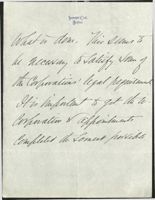 What is done. This seems to
be necessary to satisfy some of
the Corporations' legal requirements
It is important to get the
Corporation & appointments
completed the soonest possible